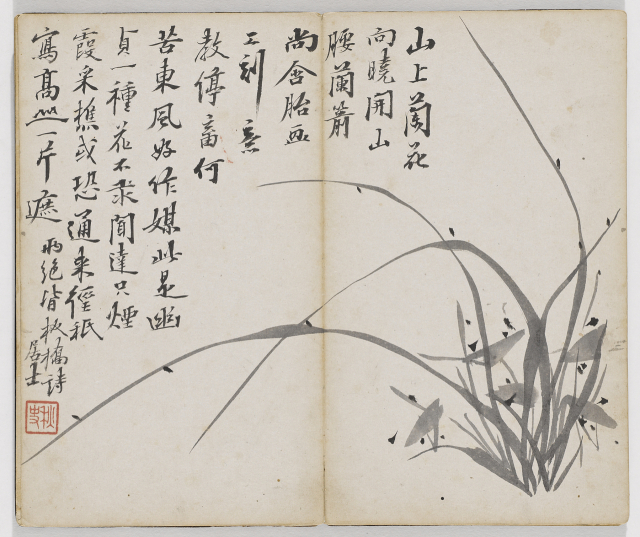 山上蘭花
向曉開山
腰蘭箭
尚含胎画
工刻意
教停畜何
苦東風好作媒此是幽
貞一種花不求聞達只煙
霞采樵或恐通來徑祇
寫高山一片遮
兩絕皆板橋詩
居士
秋史